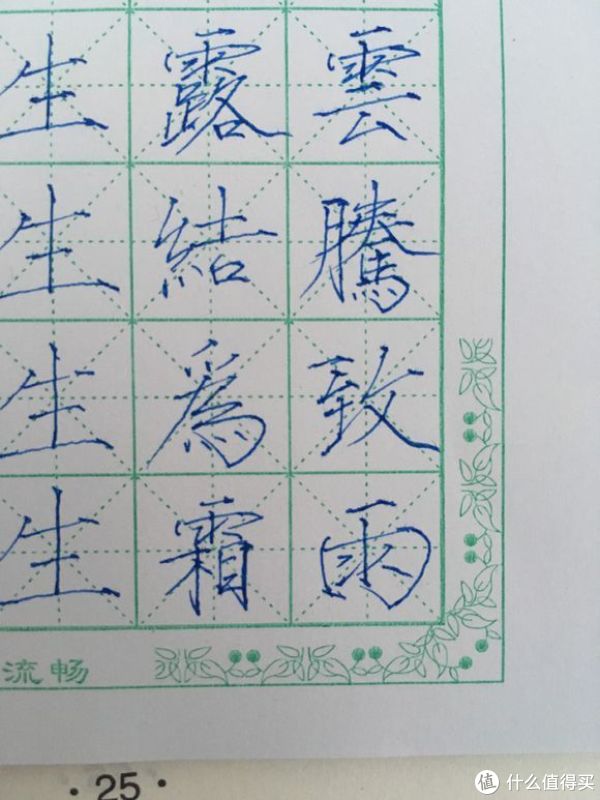 雲騰致雨
露結爲霜
生生生生
流畅
·25·
值 什么值得买